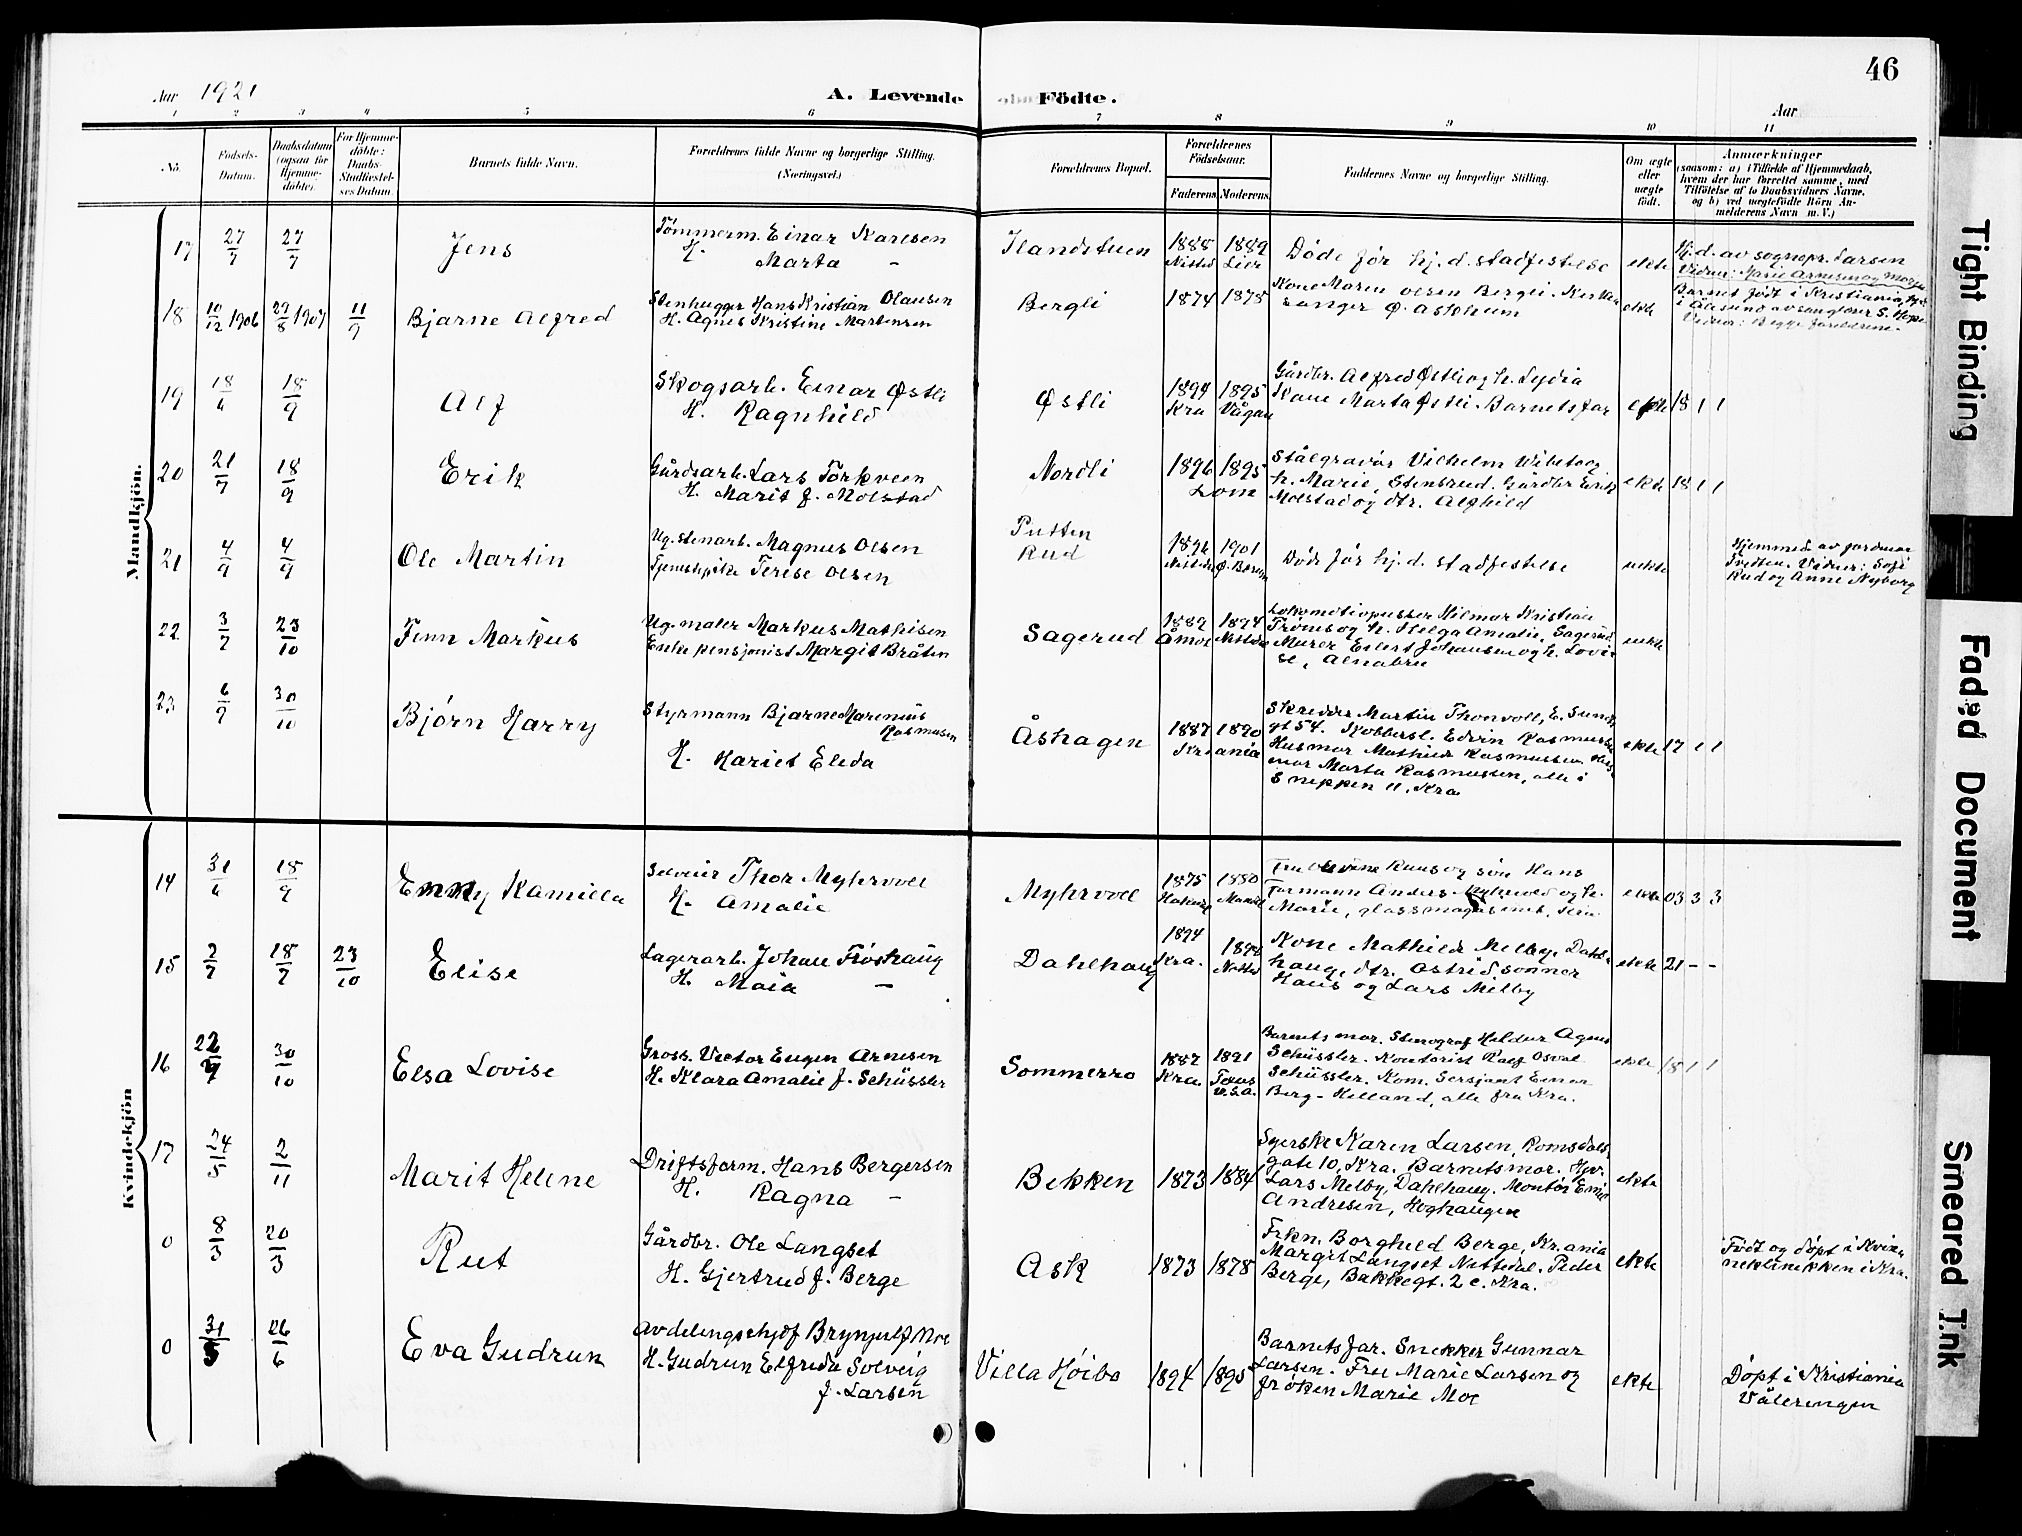 46
Aar 1921
A. Levende Födte.
Aar
1 2 3 4 5 6 7 8 9 10 11
No.
Födsels-Datum.
Daabsdatum (ogsaa for Hjemme-döbte).
For Hjemme-döbte: Daabs-Stadfæstel-ses Datum.
Barnets fulde Navn.
Forældrenes fulde Navne og borgerlige Stilling.
(Næringsvei.)
Forældrenes Bopæl.
Forældrenes Födselsaar.
Faderens. Moderens.
Faddernes Navne og borgerlige Stilling.
Om ægte eller uægte födt.
Anmærkninger
(saasom: a) i Tilfælde af Hjemmedaab,
hvem der har forrettet samme, med
Tilföielse af to Daabsvidners Navne,
og b) ved uægtefödte Börn An-
melderens Navn m. V.)
Mandkjön.
17 27/7 27/7 Jens
Tömmerm. Einar Karlsen
H. Marta -
1888 1889
Nitted Lier
Døde før hj. d. stadfestelse
ekte
Hj. d. av sognepr. Larsen
18 10/12 1906 29/8 1907 11/9 Bjarne Alfred
Stenhugger Hans Kristian Olausen
H. Agnes Kristine Martensen
Bergli
1874 1878
Kone Maren Olsen Bergli. Kirke
sanger Ø. Askheim
ekte
Barnet født i Kristiania,
Vidner: Begge foreldrene.
19 18/6 18/9 Alf
Skogsarb. Einar Østli
H. Ragnhild
Østli
1894 1895
Kra Vågan
Gårdbr. Alfred Østli og h. Lydia
Kone Marta Østli. Barnets far
ekte 18 1 1
20 21/7 18/9 Erik
Gårdsarb. Lars Torkveen
H. Marit f. Molstad
Nordli
1896 1895
Lom
Stålgravør Vilhelm
h. Marie, Stensrud. Gårdbr Erik
Molstad og dtr. Alfhild
ekte 18 1 1
21 4/9 4/9 Ole Martin
Ug. stenarb. Magnus Olsen
Tjenestepike Terese Olsen
Putten
Rud
1896 1901
Døde før hj. d. stadfestelse
uekte
Hjemmed. av jordmor
Tveten. Vidner: Sofi
Rud og Anne Nyborg
22 3/7 23/10 Finn Markus
Ug. maler Markus Mathisen
Enke pensjonist Margit Bråten
Sagerud
1889 1894
Åmot Nittedal
Lokomotivpusser Hilmar Kristian
Trøms og h. Helga Amalie, Sagerud
Murer Eilert Johansen og h. Lovi
se, Alnabru
uekte
23 6/7 30/10 Bjørn Harry
Styrmann Bjarne Marenius
Rasmusen
H. Hariet Elida
Åshagen
1887 1890
Kristiania
Skredder Martin Thorvoll, E. Sunds
gt 54. Kobbersl. Edvin Rasmussen
Husmor Mathilde Rasmussen Hus
mor Marta Rasmussen, alle i
Sneppen 11. Kra
ekte 17 1 1
Kvindekjön
14 31/6 18/9 Emmy Kamilla
Selveier Thor Myhrvoll
H. Amalie
Myhrvoll
1875 1880
Fru Olevine Ruus og søn Hans
Formann Anders Myhrvold og h.
Marie, glassmagasinet,
ekte 03 3 3
15 2/7 18/7 23/10 Elise
Lagerarb. Johan Frøshaug
H. Maia -
Dahlhaug
1894 1894
Kra. Nitted
Kone Mathilde Melby, Dahl-
haug, dtr. Astrid, sønner
Hans og Lars Melby
ekte 21 - -
16 22/7 30/10 Elsa Lovise
Gross. Victor Eugen Arnesen
H. Klara Amalie f. Schüssler
Sommerro
1887 1891
Kra. Texas U.S.A.
Barnets mor. Stenograf Hildur Agnes
Schüssler. Kontorist Ralf Osval
Schüssler. Kom. Sersjant Einar
Berg-Helland, alle fra Kra.
ekte 18 1 1
17 24/5 2/11 Marit Helene
Driftsform. Hans Bergersen
H. Ragna -
Bekken
1873 1884
Syerske Karen Larsen, Romsdals
gate 10, Kra. Barnets mor. Hjv.
Lars Melby, Dahlhaug. Montør Emil
Andresen, Hoghaugen
ekte
0 8/3 20/3 Rut
Gårdbr. Ole Langset
H. Gjertrud f. Berge
Ask
1873 1878
Frkn. Borghild Berge, Kr.ania
Margit Langset Nittedal. Peder
Berge, Bakkegt. 2 c. Kra.
ekte
Født og døpt i Kvin
neklinikken i Kra.
0 31/5 26/6 Eva Gudrun
Avdelingschef Brynjulf Moe
H. Gudrun Elfrida Solveig
f. Larsen
Villa Høibo
1894 1895
Barnets far. Snekker Gunnar
Larsen. Fru Marie Larsen og
frøken Marie Moe
ekte
Døpt i Kristiania
Vålerengen
Tight Binding
Faded Document
Smeared Ink